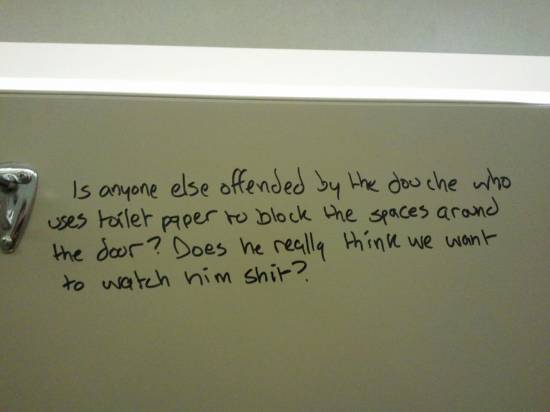 Is anyone else offended by the douche who
uses toilet paper to block the spaces around
the door? Does he really think we want
to watch him shit?